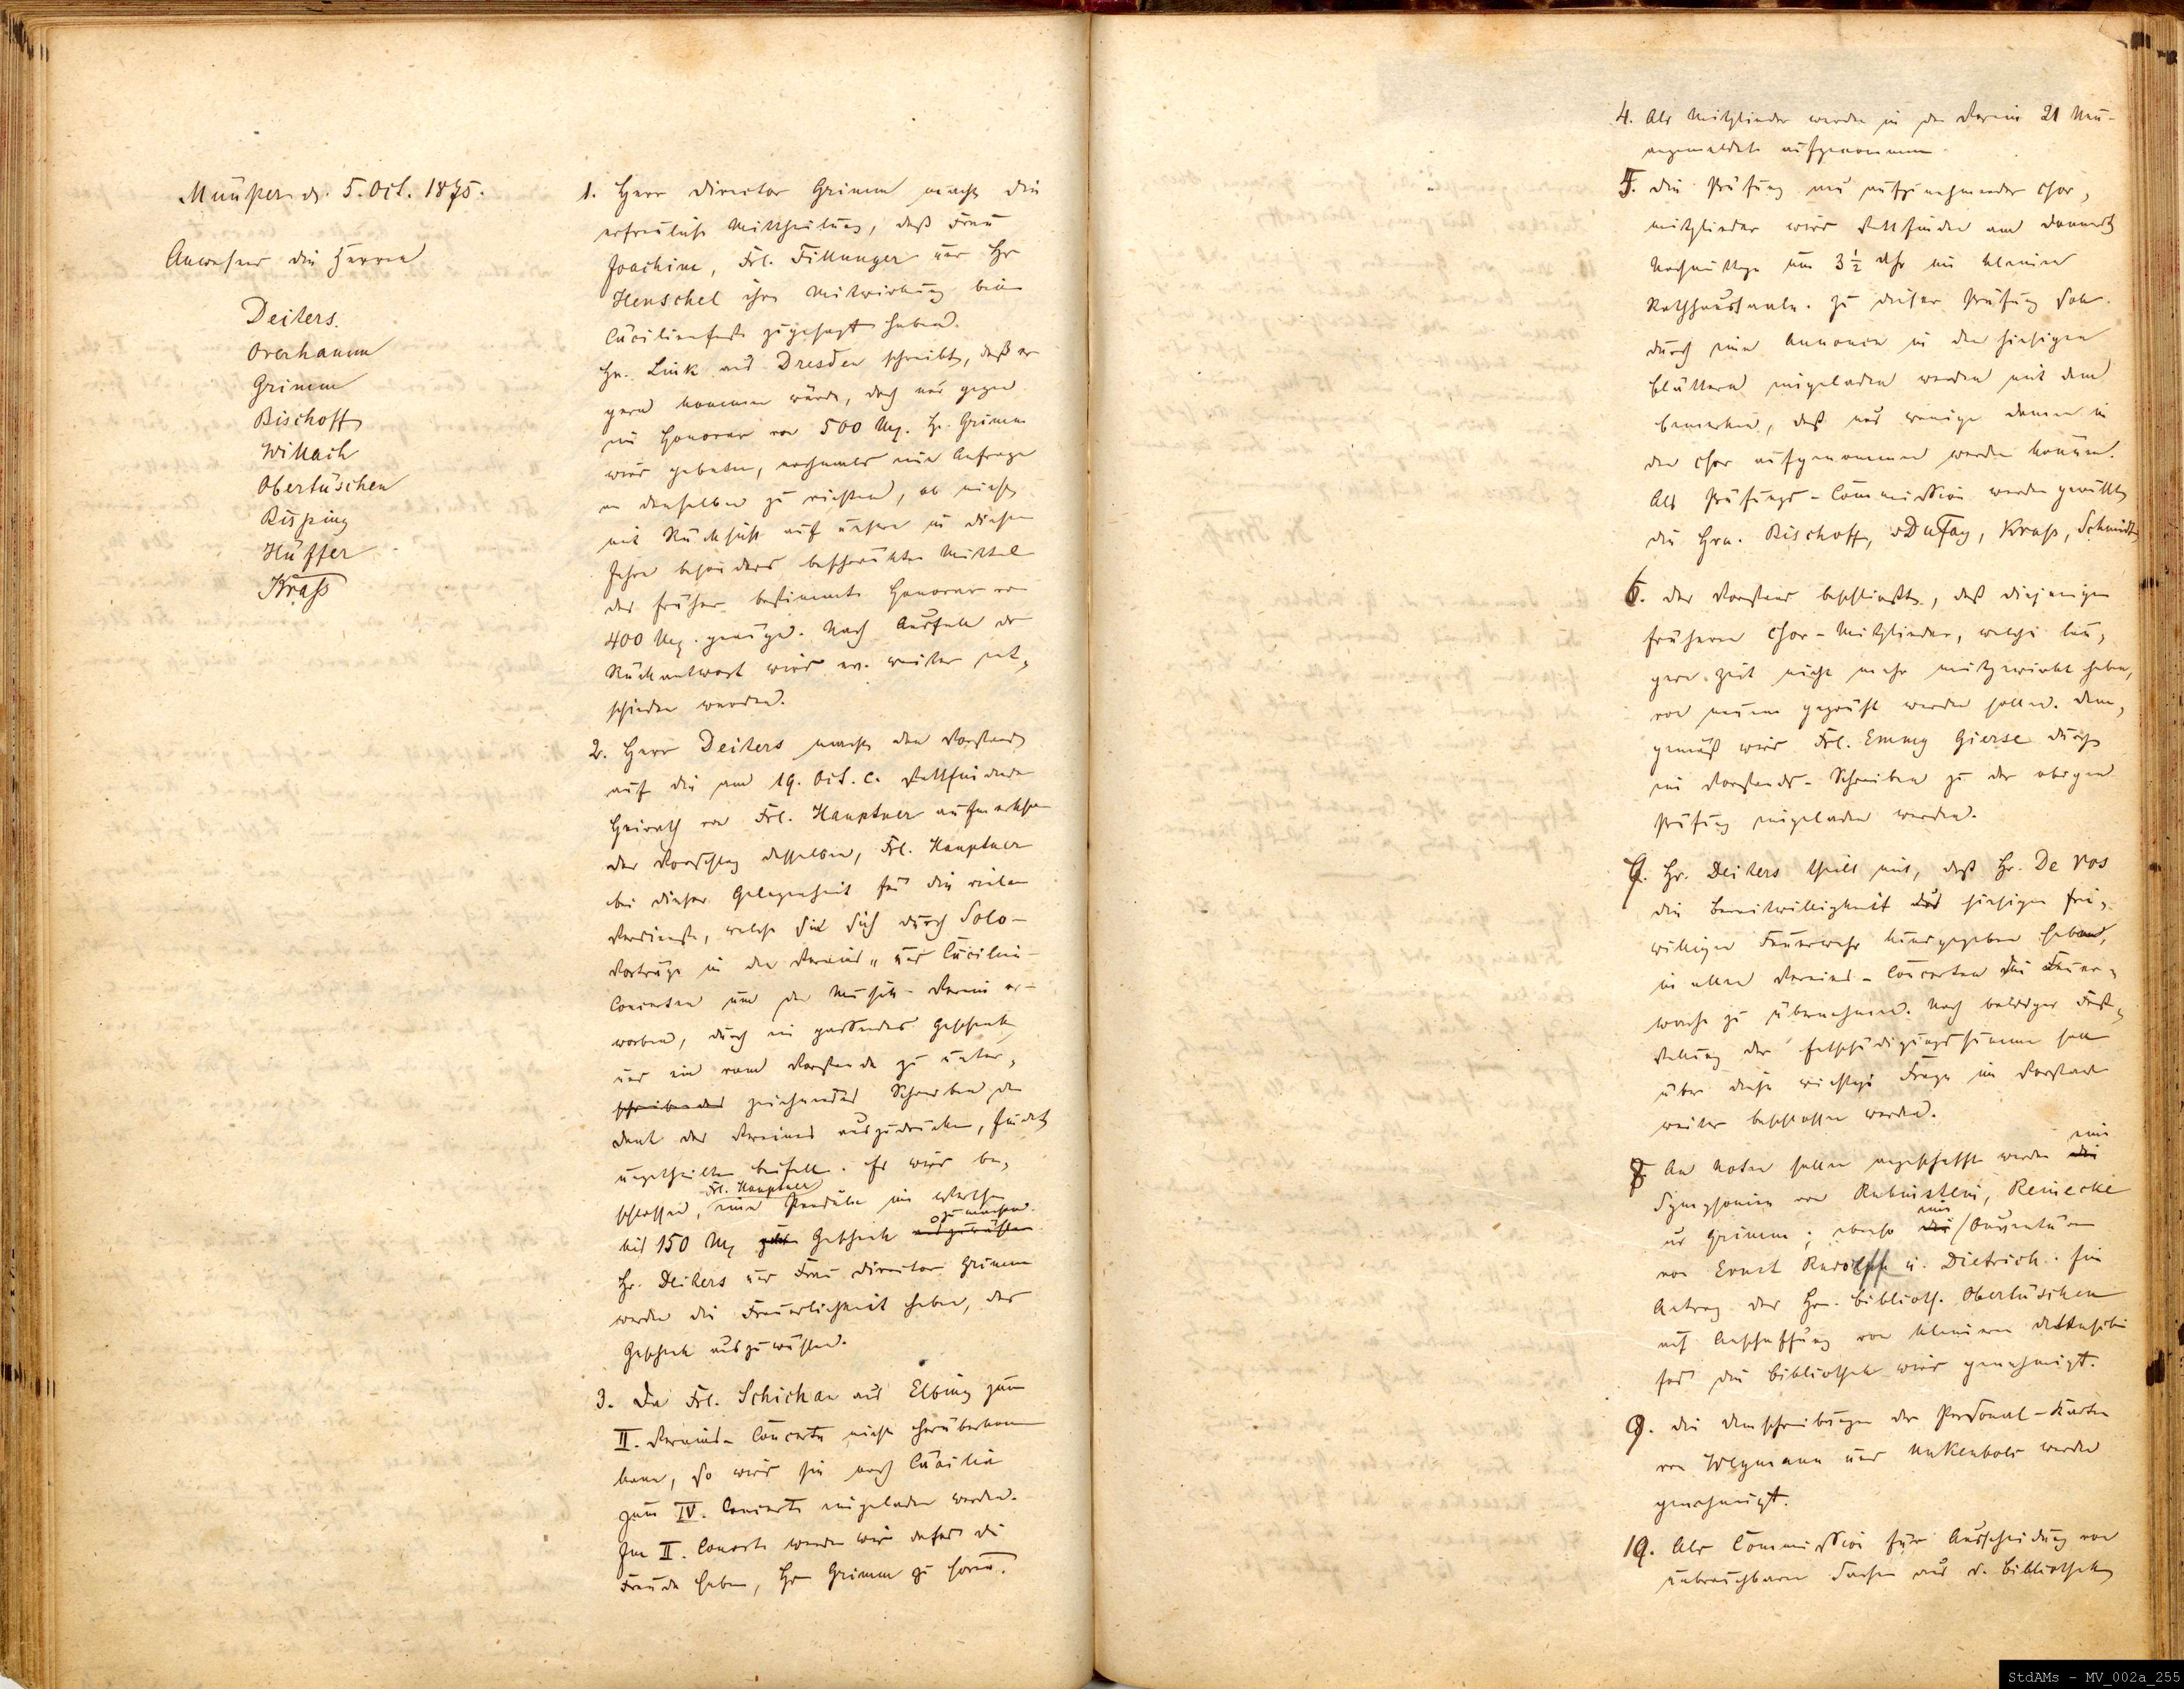 Münster d. 5. Oct. 1875.
Anwesend die Herren
Deiters.
Overhamm
Grimm
Bischoff
Wittach
Obertüschen
Bisping
Hüffer
Krass
1. Herr Director Grimm macht die
erfreuliche Mittheilung, daß Frau
Joachim, Frl. Fillunger und Hr
Henschel ihre Mitwirkung beim
Cäcilienfeste zugesagt haben.
Hr. Link aus Dresden schreibt, daß er
gern kommen würde, doch nur gegen
ein Honorar von 500 Mg. Hr. Grimm
wird gebeten, nochmals eine Anfrage
an denselben zu richten, ob nicht
mit Rücksicht auf unsere in diesem
Jahre besonders beschränkten Mittel
das früher bestimmte Honorar von
400 Mg. genüge. Nach Ausfall der
Rückantwort wird ev. weiter ent-
schieden werden.
2. Herr Deiters macht den Vorstand
auf die am 19. Oct. c. stattfindende
Heirath von Frl. Hauptner aufmerksam
Der Vorschlag desselben, Frl. Hauptner
bei dieser Gelegenheit für die vielen
Verdienste, welche sie sich durch Solo-
Vorträge in den Vereins- und Cäcilien-
Concerten um den Musik-Verein er-
worben, durch ein passendes Geschenk
und ein vom Vorstande zu unter-
schreibendes zeichnendes Schreiben den
Dank des Vereines auszudrücken, findet
ungetheilten Beifall. Es wird be-
schlossen, Frl. Hauptner eine Pendule im Werthe
bis 150 Mg zum Geschenk auszuwählen zu machen.
Hr. Deiters und Frau Director Grimm
werden die Freundlichkeit haben, das
Geschenk auszuwählen.
3. Da Frl. Schichau aus Elbing zum
II. Vereins-Concerte nicht herüberkommen
kann, so wird sie nach Cäcilia
zum IV. Concerte eingeladen werden.
Im II. Concerte werden wir dafür die
Freude haben, Hrn Grimm zu hören.
4. Als Mitglieder werden in den Verein 21 Neu-
angemeldete aufgenommen.
5. Die Prüfung neu aufzunehmender Chor-
mitglieder wird stattfinden am Donnerstag
Nachmittage um 3 1/2 Uhr im kleinen
Rathhaussaale. Zu dieser Prüfung soll
durch eine Annonce in den hiesigen
Blättern eingeladen werden mit dem
Bemerken, daß nur wenige Damen in
den Chor aufgenommen werden können.
Als Prüfungs-Commission werden gewählt
die Hrn. Bischoff, v Du Fay, Krass, Schmidt
6. Der Vorstand beschließt, daß diejenigen
früheren Chor-Mitglieder, welche län-
gere Zeit nicht mehr mitgewirkt haben,
von neuem geprüft werden sollen. Dem-
gemäß wird Frl. Emmy Gierse durch
ein Vorstands-Schreiben zu der obigen
Prüfung eingeladen werden.
7. Hr. Deiters theilt mit, daß Hr. De Vos
die Bereitwilligkeit der hiesigen frei-
willigen Feuerwehr kundgegeben habe,
in allen Vereins-Concerten die Feuer-
wache zu übernehmen. Nach vorheriger Fest-
stellung der Entschädigungssumme soll
über diese wichtige Frage im Vorstande
weiter beschlossen werden.
8. An Noten sollen angeschafft werden die eine
Symphonien von Rubinstein, Reinecke
und Grimm; ebenso die eine Ouvertüren
von Ernst Rudolff u. Dietrich. Ein
Antrag des Hrn. Biblioth. Obertüschen
auf Anschaffung von kleineren Utensilien
für die Bibliothek wird genehmigt.
9. Die Umschreibungen der Personal-Karten
von Weymann und Unkenbold werden
genehmigt.
10. Als Commission für Ausscheidung von
unbrauchbaren Sachen aus d. Bibliothek
StdAMs - MV_002a_255